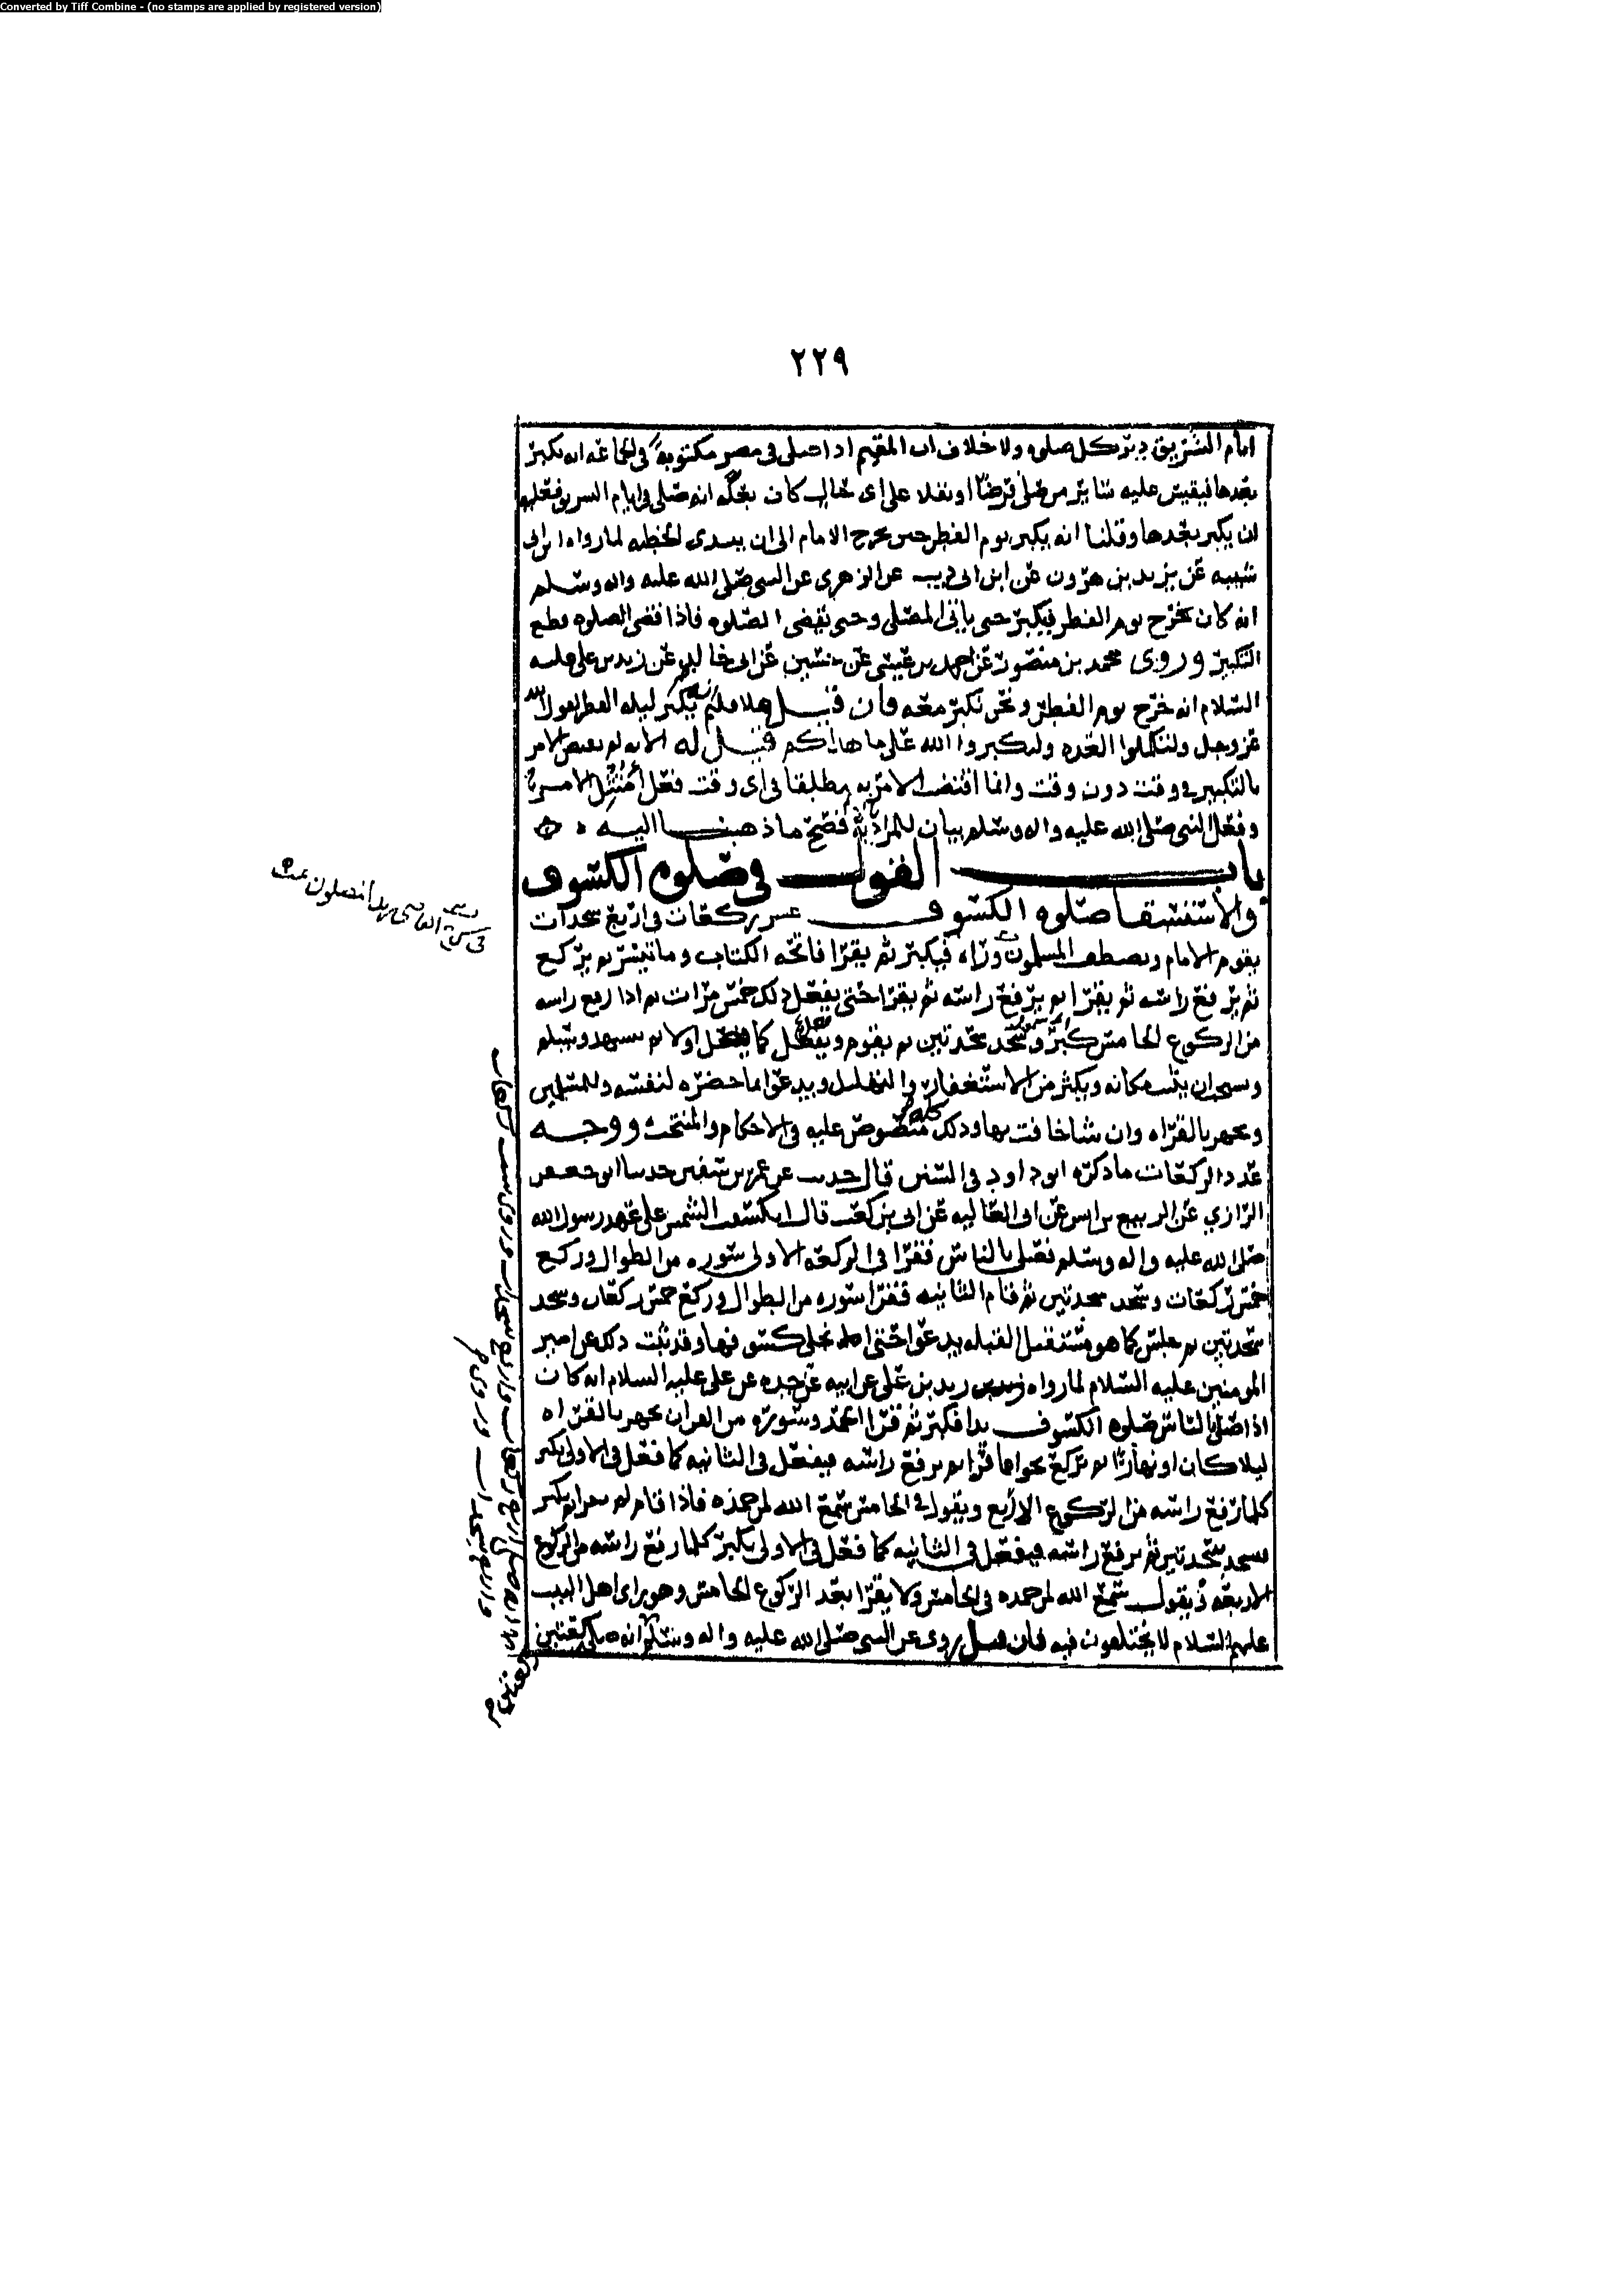 Converted by Tiff Combine - (no stamps are applied by registered version)
٢٢٩
ايام التشريق دبر كل صلوه ولا خلاف ان المقيم اذا صلى في مصر مكتوبة في الجماعه انه يكبر
بعدها فيقيس عليه سائر من صلى فرضا او نفلا على اى حال كان بعله انه صلى في ايام التشريق فعليه
ان يكبر بعدها وقلنا انه يكبر يوم الفطر حين يخرج الامام الى ان يبتدى الخطبه لما رواه ابن ابى
شيبه عن يزيد بن هرون عن ابن ابى ذيب عن الزهرى عن النبى صلى الله عليه واله وسلم
انه كان يخرج يوم الفطر فيكبر حتى ياتى المصلى وحتى يقضى الصلوه فاذا قضى الصلوه قطع
التكبير وروى محمد بن منصور عن احمد بن عيسى عن حسين عن ابى خالد عن زيد بن على عليه
السلام انه خرج يوم الفطر ونحن نكبر معه فان قيل هلا قلتم انه يكبر ليله الفطر لقول الله
عز وجل ولتكملوا العده ولتكبروا الله على ما هداكم قيل له الايه لم تقتض الامر
بالتكبير في وقت دون وقت وانما اقتضت الامر به مطلقا في اى وقت فعل امتثل الامر به
وفعل النبى صلى الله عليه واله وسلم بيان للمراد بالايه فصح ما ذهبنا اليه
باب القول في صلوه الكسوف
والاستسقا صلوه الكسوف عشر ركعات في اربع سجدات
يقوم الامام ويصطف المسلمون وراه فيكبر ثم يقرا فاتحه الكتاب وما تيسر ثم يركع
ثم يرفع راسه ثم يقرا ثم يرفع راسه ثم يقرا حتى يفعل ذلك خمس مرات ثم اذا رفع راسه
من الركوع الخامس كبر وسجد سجدتين ثم يقوم ويفعل كما فعل اولا ثم يتشهد ويسلم
ويستحب ان يثبت مكانه ويكثر من الاستغفار والتهليل ويدعوا بما حضره لنفسه وللمسلمين
ويجهر بالقراه وان شا خافت بها وذلك كله منصوص عليه في الاحكام والمنتخب ووجه
عدد الركعات ما ذكره ابو داود في السنن قال حدثت عن عمر بن شقيق حدثنا ابو جعفر
الرازي عن الربيع بن انس عن ابى العاليه عن ابى بن كعب قال انكسفت الشمس على عهد رسول الله
صلى الله عليه واله وسلم فصلى بالناس فقرا في الركعه الاولى سوره من الطوال وركع
خمس ركعات وسجد سجدتين ثم قام الثانيه فقرا سوره من الطوال وركع خمس ركعات وسجد
سجدتين ثم جلس كما هو مستقبل القبله يدعوا حتى تجلى كسوفها وقد ثبت ذلك عن امير
المومنين عليه السلام لما رواه زيد بن على عن ابيه عن جده عن على عليه السلام انه كان
اذا صلى بالناس صلوه الكسوف بدا فكبر ثم قرا الحمد وسوره من القران يجهر بالقراه
ليلا كان او نهارا ثم يركع نحوا مما قرا ثم يرفع راسه فيفعل في الثانيه كما فعل في الاولى يكبر
كلما رفع راسه من الركوع الاربع ويقول في الخامس سمع الله لمن حمده فاذا قام لم يقرا ثم يكبر
فيسجد سجدتين ثم يرفع راسه فيفعل في الثانيه كما فعل في الاولى يكبر كلما رفع راسه من الركوع
الاربعه ويقول سمع الله لمن حمده في الخامس ولا يقرا بعد الركوع الخامس وهو راى اهل البيت
عليهم السلام لا يختلفون فيه فان قيل روى عن النبى صلى الله عليه واله وسلم انه صلى ركعتين